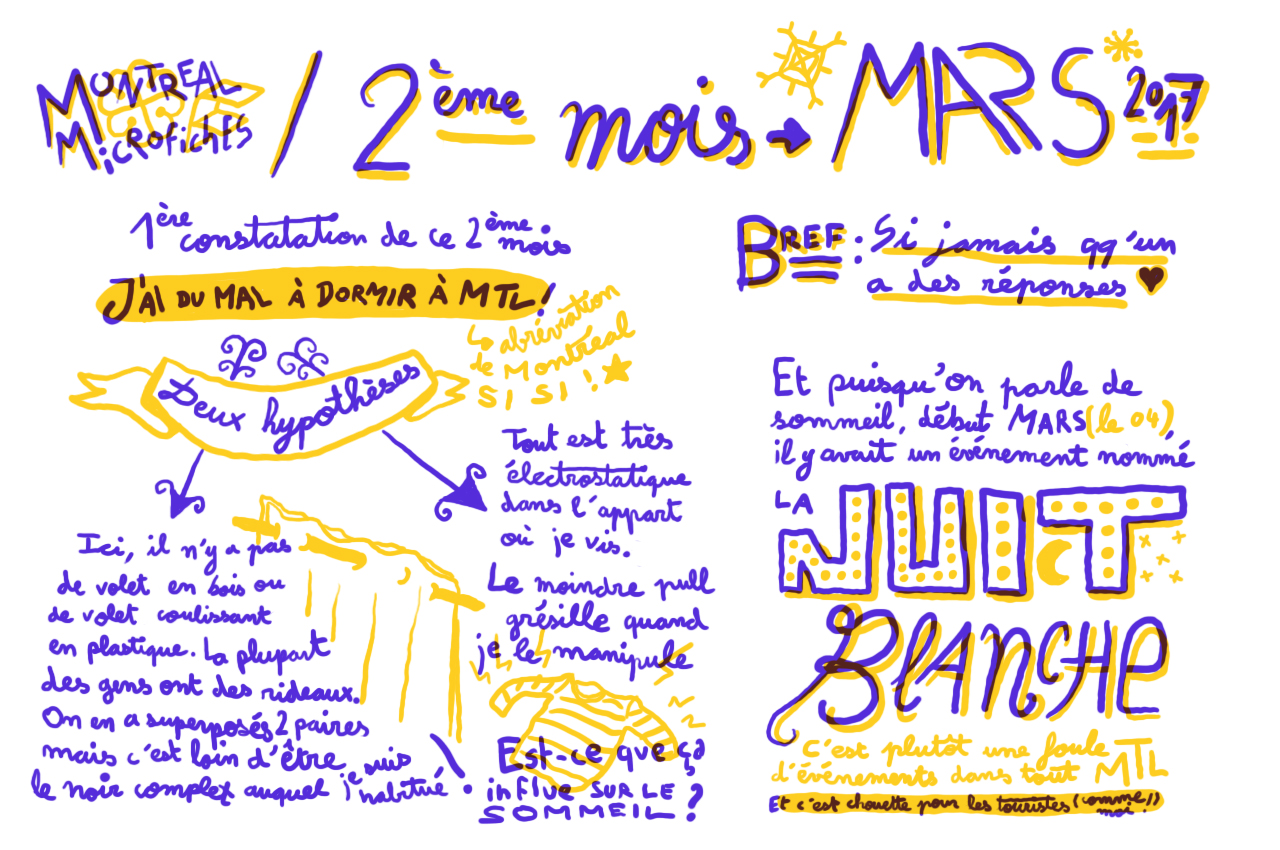 MONTREAL
MicROfichES
/ 2ème mois → MARS 2017
1ère constatation de ce 2ème mois
J'AI DU MAL À DORMIR À MTL!
↳ abréviation
de Montréal
SI SI !
Deux hypothèses
Ici, il n'y a pas
de volet en bois ou
de volet coulissant
en plastique. La plupart
des gens ont des rideaux.
On en a superposés 2 paires
mais c'est loin d'être
le noir complet auquel je suis
habitué.
Tout est très
électrostatique
dans l'appart
où je vis.
Le moindre pull
grésille quand
je le manipule
Est-ce que ça
influe SUR LE
SOMMEIL ?
BREF : Si jamais qq'un
a des réponses ♥
Et puisqu'on parle de
sommeil, début MARS (le 04),
il y avait un événement nommé
LA
NUIT
BLANCHE
C'est plutôt une foule
d'événements dans tout MTL
Et c'est chouette pour les touristes (comme moi !)